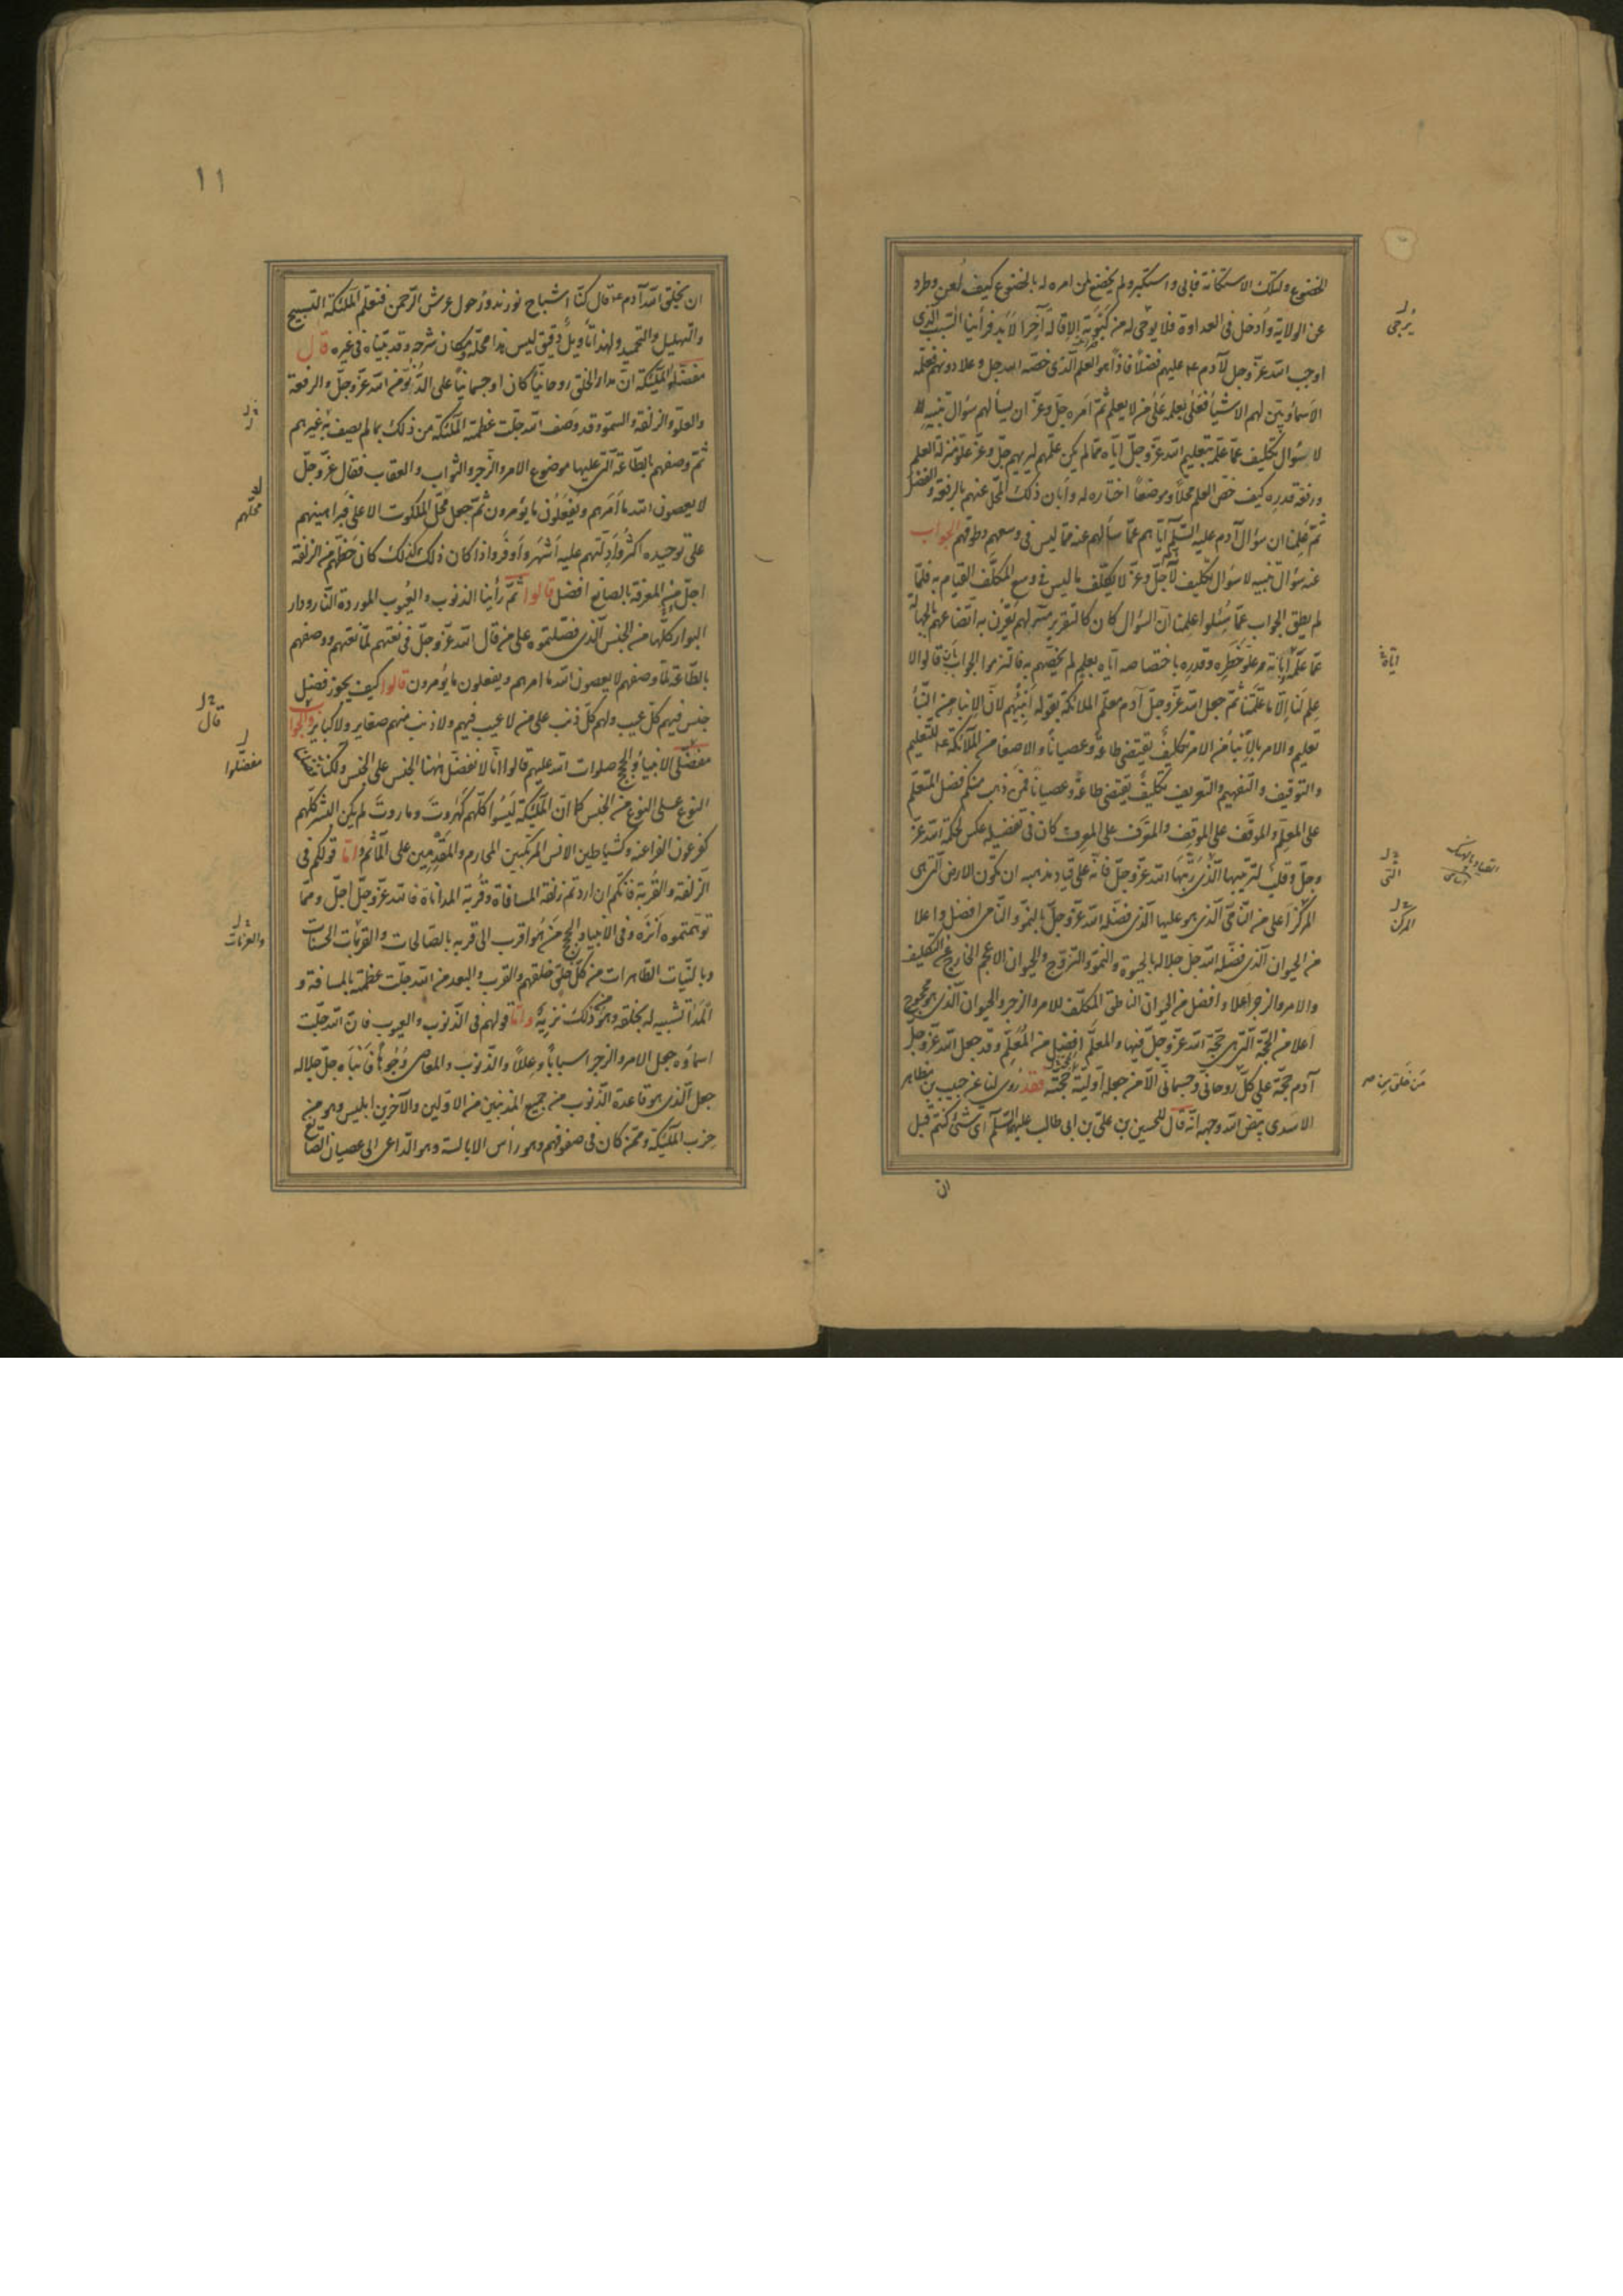 الخضوع ولتلك الاستكانة فابى واستكبر ولم يخضع لمن امره له بالخضوع كيف لعن وطرد
عن الولاية وأدخل فى العداوة فلا يرجى له من كبوته الاقالة آخر الابد فرأينا السبب الذى
اوجب الله عزّ وجل لآدم ع عليهم فضلا فاذا هو العلم الذى خصه الله جل وعلا دونهم فعلمه
الاسماء وبيّن لهم الاشياء فعلى بعلمه على من لا يعلم ثمّ امره جلّ وعزّ ان يسألهم سؤال تنبيه
لا سؤال تكليف عمّا علّمه بتعليم الله عزّ وجلّ ايّاه ممّا لم يكن علّمهم ليريهم جلّ وعزّ علوّ منزلة العلم
ورفعة قدره كيف خصّ العلم محلا وموضعا اختاره له وأبان ذلك المحل عنهم بالرفعة والفضل
ثمّ علمنا ان سؤال آدم عليه السّلم ايّاهم عمّا سألهم عنه ممّا ليس فى وسعهم وطوقهم الجواب
عنه سؤال تنبيه لا سؤال تكليف لانه جلّ وعزّ لا يكلّف ما ليس فى وسع المكلّف القيام به فلمّا
لم يطق الجواب عمّا سئلوا علمنا انّ السؤال كان كالتقرير منه لهم يقرن به
عمّا علّمه ايّاه وعلوّ خطره وقدره باختصاصه ايّاه بعلم لم يخصّهم به فالتزموا الجواب بان قالوا لا
علم لنا الّا ما علّمتنا ثمّ جعل الله عزّ وجلّ آدم معلّم الملائكة بقوله أنبئهم لانّ الانباء من النّبأ
تعليم والامر بالانباء من الامر تكليف يقتضى طاعة وعصيانا والاصغاء من الملائكة ع للتعليم
والتوقيف والتفهيم والتعريف تكليف يقتضى طاعة وعصيانا فمن ذهب منكم الى فضل المتعلّم
على المعلّم والموقَّف على الموقِّف والمعرَّف على المعرِّف كان فى تفضيله عكس لحكمة الله عزّ
وجلّ وقلب لترتيبها الّذى رتّبها الله عزّ وجلّ فانّه على قياد مذهبه ان تكون الارض التى هى
المركز أعلى من النّامى الّذى هو عليها الّذى فضله الله عزّ وجلّ بالنموّ والنّامى افضل واعلا
من الحيوان الّذى فضله الله جلّ جلاله بالحيوة والنموّ والرّوح والحيوان الاعجم الخارج عن التكليف
والامر والزجر أعلا وافضل من الحيوان الناطق المكلّف للامر والزجر والحيوان الّذى هو محجوج
اعلا من الحجّة الّتى هى حجّة الله عزّ وجلّ فيها والمعلَّم افضل من المعلِّم وقد جعل الله عزّ وجلّ
آدم حجّة على كلّ روحانى وجسمانى الّا من جعل له أوليّة الحجّة فقد روى لنا عن حبيب بن مظاهر
الاسدى بيّض الله وجهه انّه قال للحسين بن على بن ابى طالب عليهما السّلم اى شىء كنتم قبل
ان
يُرجى
ايّاه
التى
المركز
من خلق من
١١
ان يخلق الله آدم ع قال كنّا اشباح نور ندور حول عرش الرّحمن فنعلّم الملئكة التسبيح
والتهليل والتحميد ولهذا تأويل دقيق ليس هذا محلّه ومكان شرحه وقد بيّناه فى غيره قال
مفضّلو الملئكة انّ مدار الخلق روحانيّا كان او جسمانيّا على الدّنوّ من الله عزّ وجلّ والرفعة
والعلوّ والزلفة والسّموّ وقد وصف الله جلّت عظمته الملئكة من ذلك بما لم يصف به غيرهم
ثمّ وصفهم بالطّاعة الّتى عليها موضوع الامر والزّجر والثواب والعقاب فقال عزّ وجلّ
لا يعصون الله ما أمرهم ويفعلون ما يؤمرون ثمّ جعل محلّ الملكوت الاعلى فبراهينهم
على توحيده اكثر وأدلّتهم عليه أشهر وأوفر واذا كان ذلك كذلك كان حظّهم من الزلفة
اجلّ ومن المعرفة بالصانع افضل قالوا ثمّ رأينا الذنوب والعيوب الموردة النّار ودار
البوار كلّها من الجنس الّذى فضّلتموه على من قال الله عزّ وجلّ فى نعتهم لمّا نعتهم ووصفهم
بالطّاعة لمّا وصفهم لا يعصون الله ما امرهم ويفعلون ما يؤمرون قالوا كيف يجوز فضل
جنس فيهم كلّ عيب ولهم كلّ ذنب على من لا عيب فيهم ولا ذنب منهم صغاير ولا كباير والجواب
مفضّلى الانبياء والحجج صلوات الله عليهم قالوا انّا لا نفضّل ههنا الجنس على الجنس ولكنّا فضّلنا
النوع على النوع من الجنس كما انّ الملئكة ليسوا كلّهم كهروت وماروت لم يكن البشر كلّهم
كفرعون الفراعنة وكشياطين الانس المرتكبين المحارم والمقدمين على المآثم وامّا قولكم فى
الزّلفة والقربة فانّكم ان اردتم زلفة المسافة وقربة المداناة فالله عزّ وجلّ اجلّ وممّا
توهّمتموه أنزه وفى الانبياء والحجج من هو اقرب الى قربه بالصّالحات والقربات الحسنات
وبالنيّات الطّاهرات من كلّ خلق خلقهم والقرب والبعد من الله جلّت عظمته بالمسافة و
المدا تشبيه له بخلقه وهو من ذلك نزيه وامّا قولهم فى الذّنوب والعيوب فانّ الله جلّت
اسماؤه جعل الامر والزجر اسبابا وعللا والذّنوب والمعاصى وجوها فأنبأه جلّ جلاله
جعل الّذى هو قاعدة الذّنوب من جميع المذنبين من الاوّلين والآخرين ابليس وهو من
حزب الملئكة وممّن كان فى صفوفهم وهو رأس الابالسة وهو الدّاعى الى عصيان الصّانع
محلّهم
قال
مفضّلوا